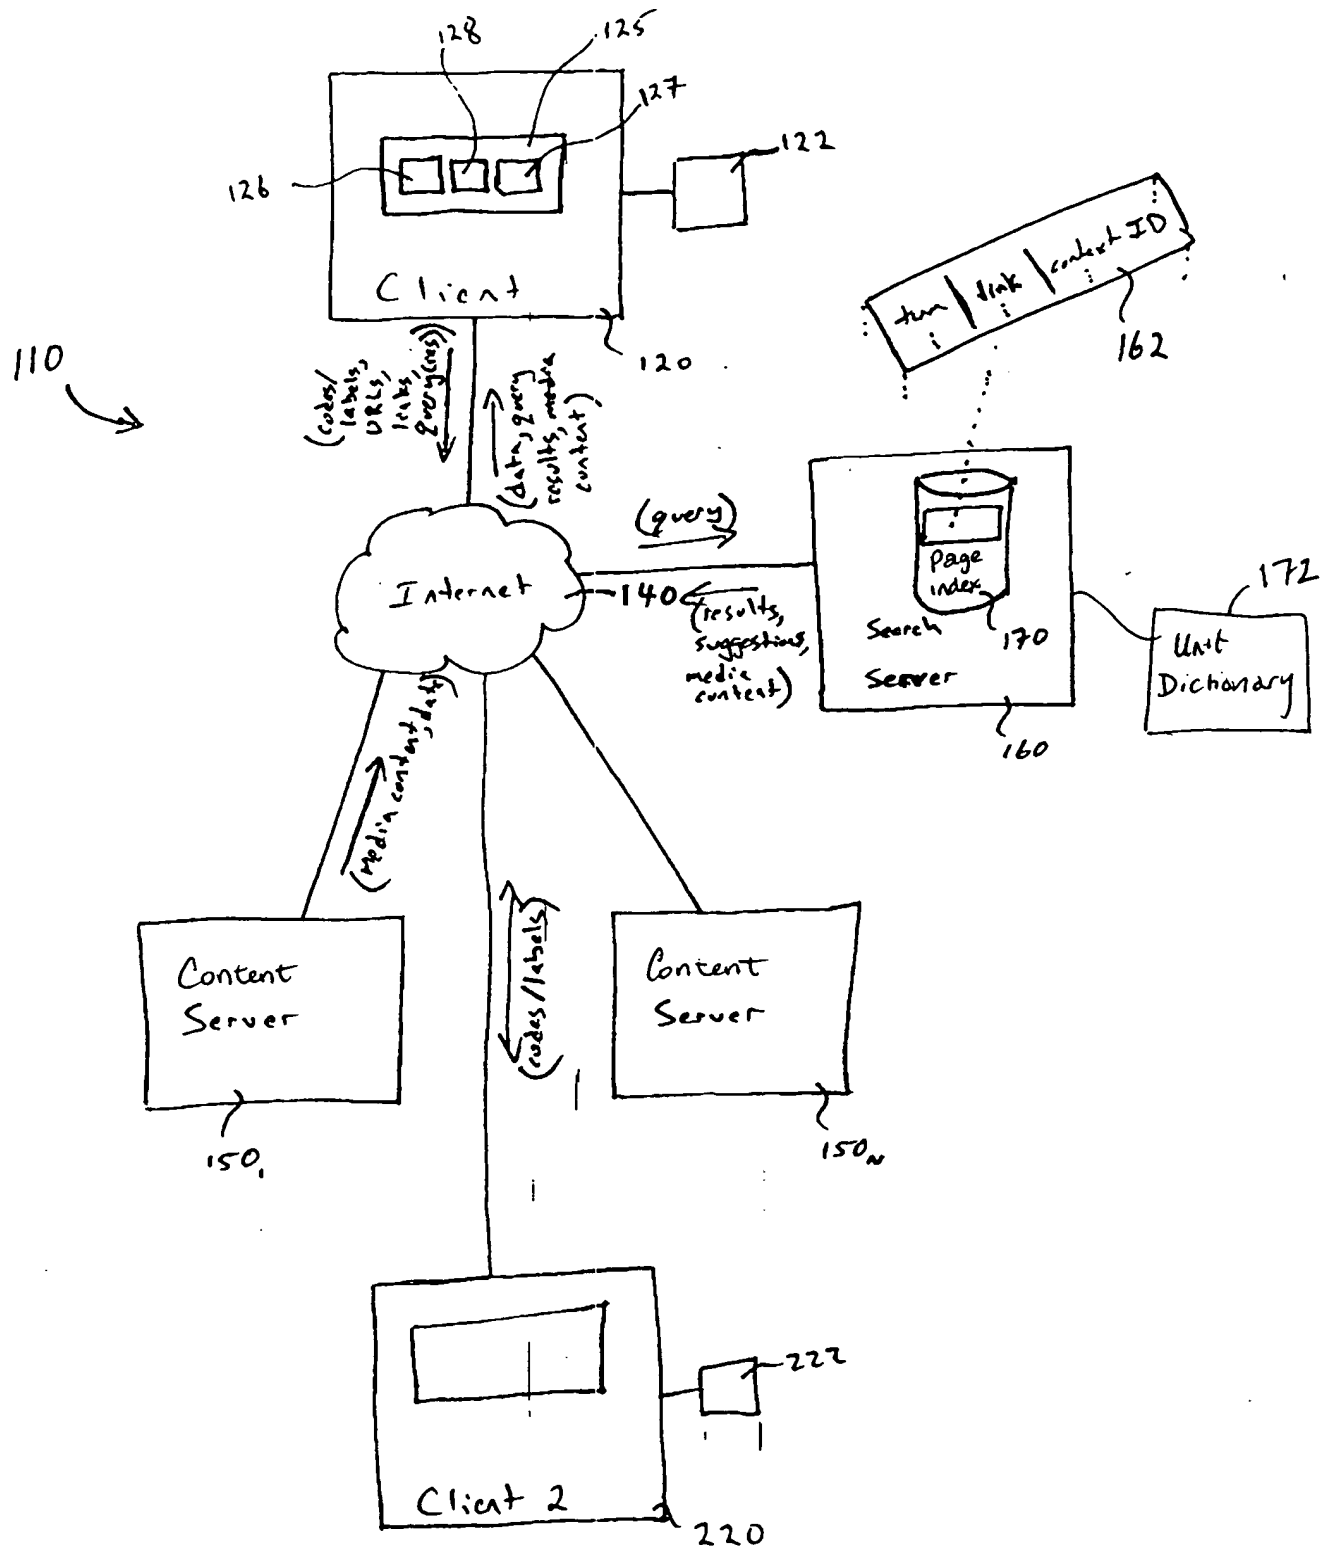 128
125
127
126
122
Client
120
110
(codes/
labels,
URLs,
links,
query(ies))
(data, query
results, media
content)
term
link
context ID
162
(query)
Internet
140
(results,
suggestions,
media
content)
Page
index
170
Search
Server
160
172
Unit
Dictionary
(Media content, data)
Content
Server
150₁
(codes/labels)
Content
Server
150ₙ
222
Client 2
220